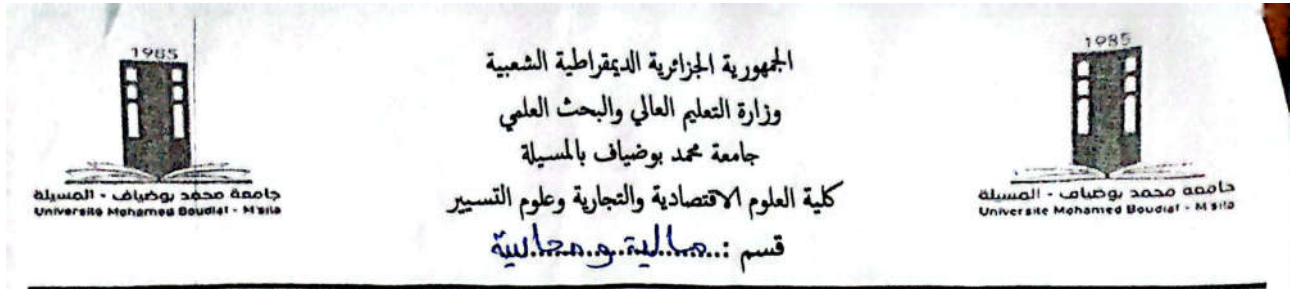 1985
جامعة محمد بوضياف - المسيلة
Université Mohamed Boudiaf - M'sila
الجمهورية الجزائرية الديمقراطية الشعبية
وزارة التعليم العالي والبحث العلمي
جامعة محمد بوضياف بالمسيلة
كلية العلوم الاقتصادية والتجارية وعلوم التسيير
قسم :..مالية و محاسبة
1985
جامعة محمد بوضياف - المسيلة
Université Mohamed Boudiaf - M'sila